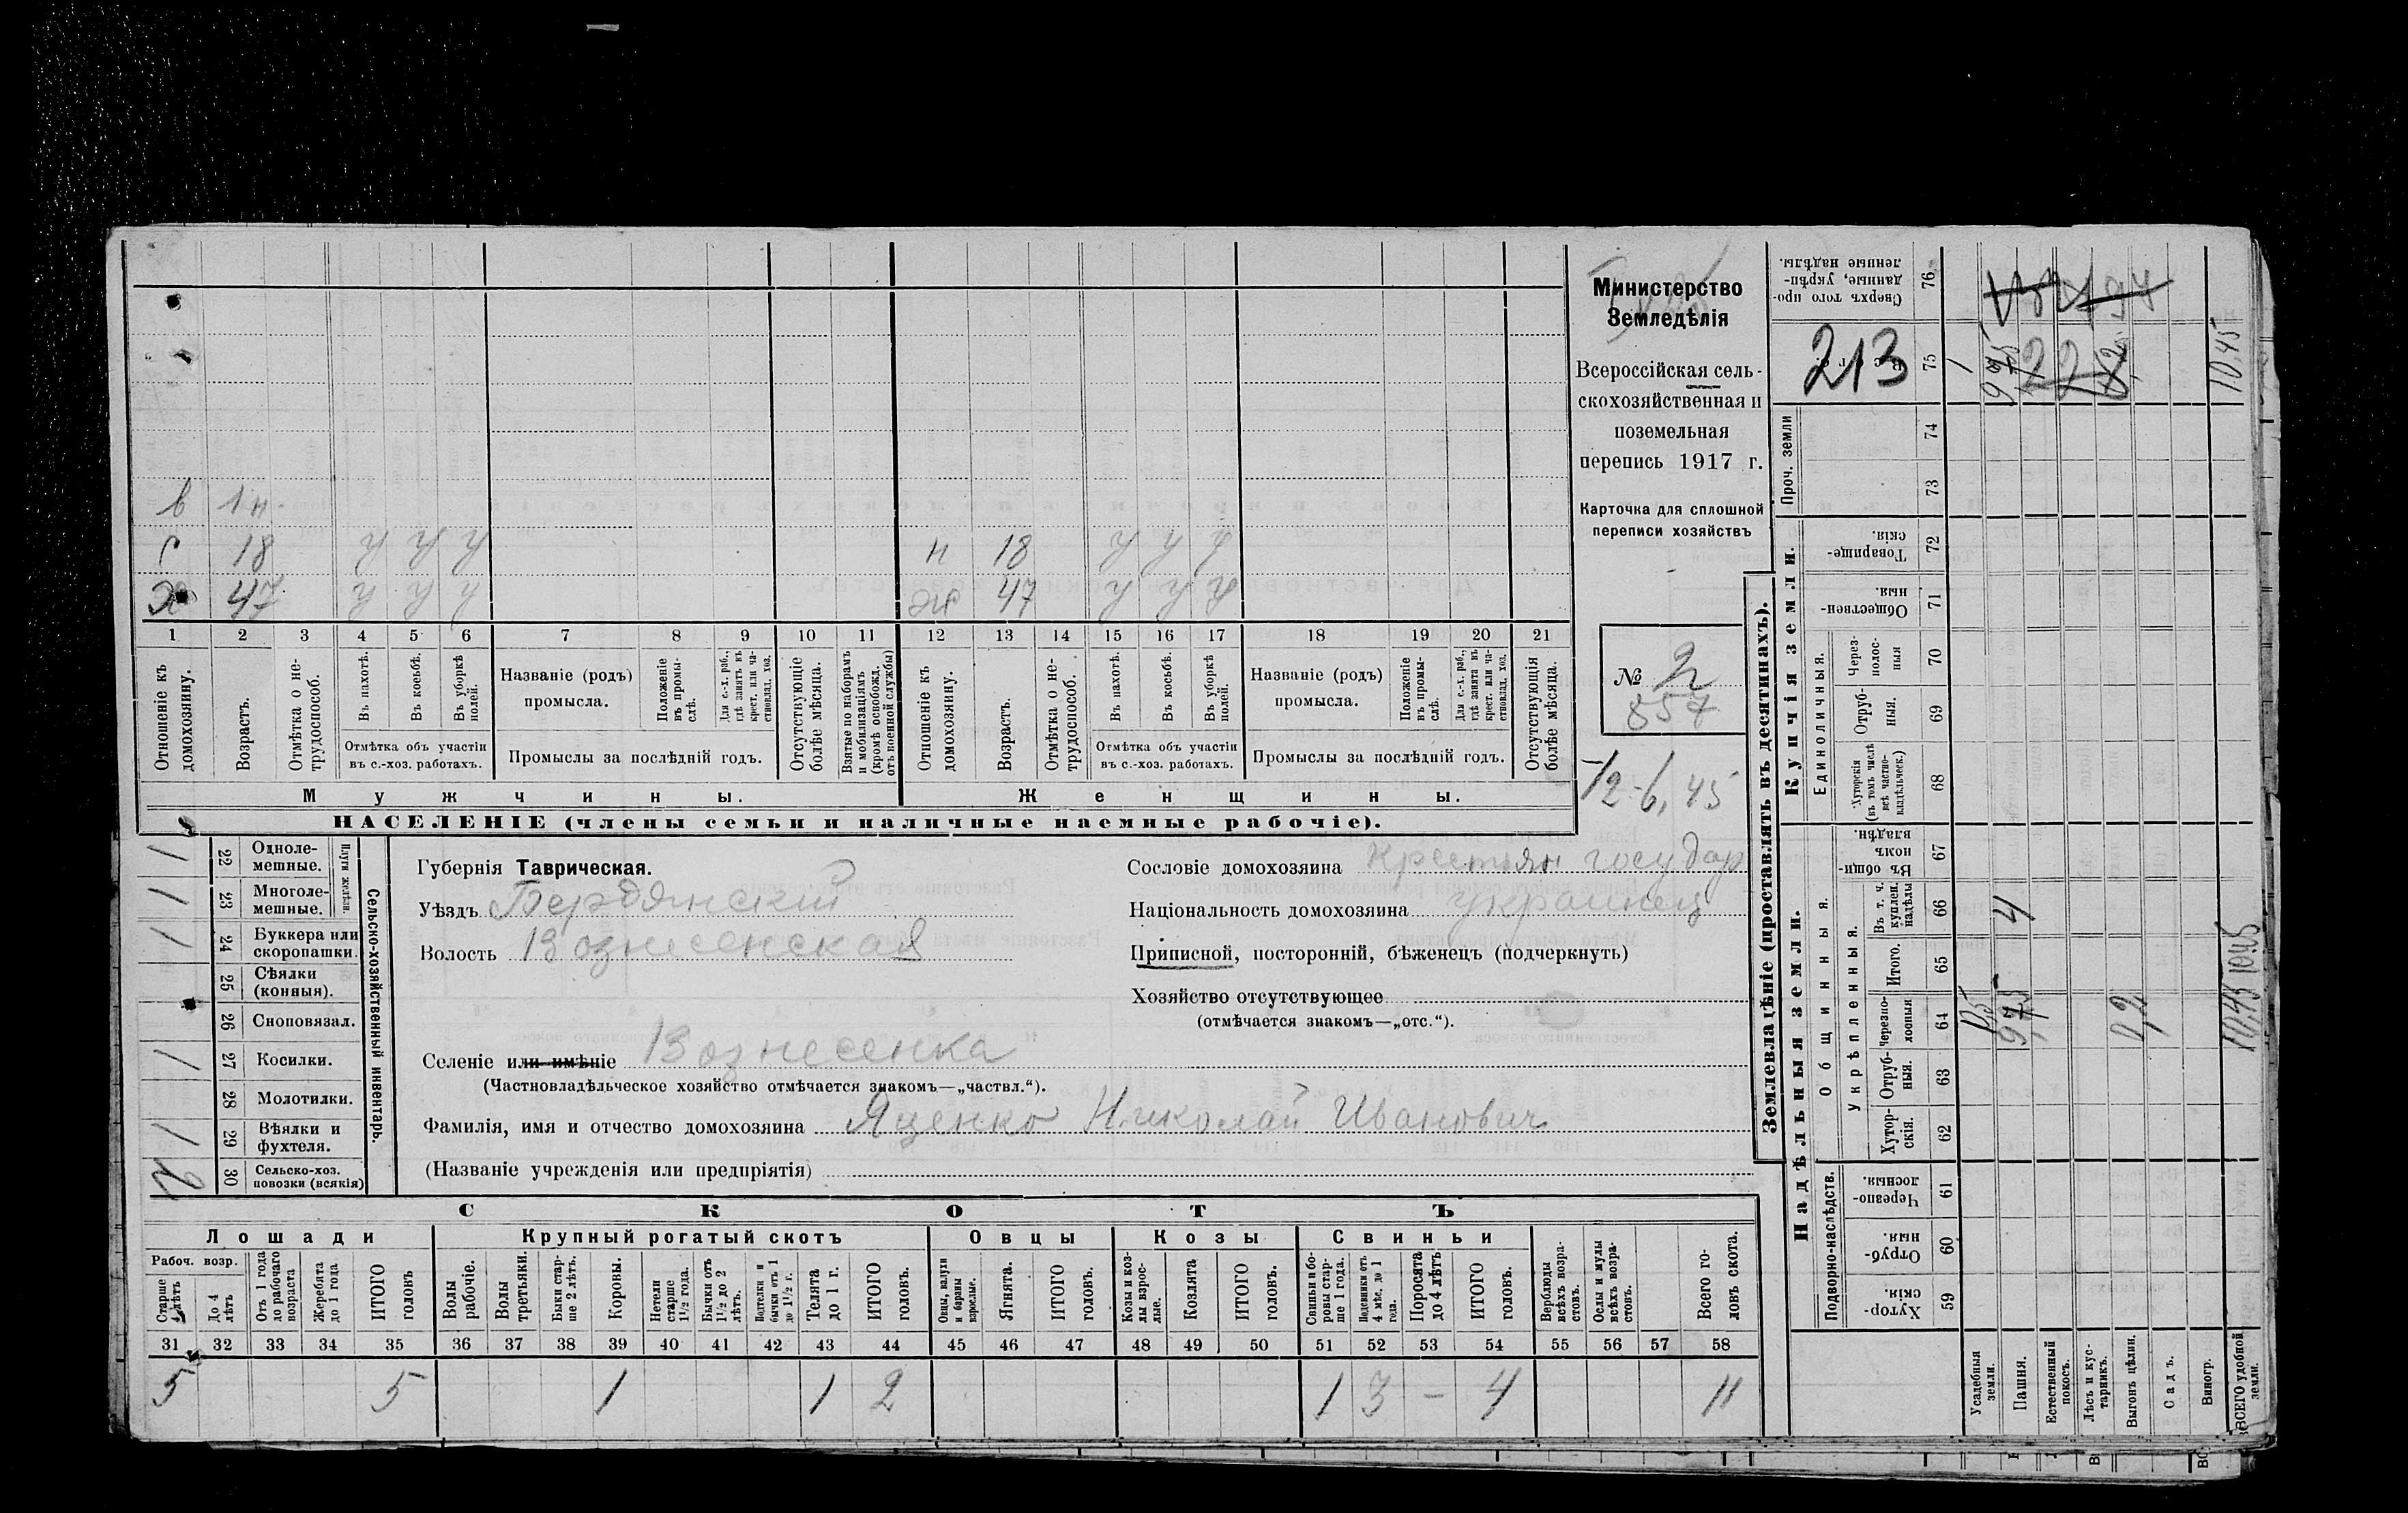 Министерство
Земледѣлія
Всероссійская сель-
скохозяйственная и
поземельная
перепись 1917 г.
Карточка для сплошной
переписи хозяйствъ
№ 2
857
12-6,45
в 1 н.
с 18 У У У н 18 У У У
Х 47 У У У ж 47 У У У
1 2 3 4 5 6 7 8 9 10 11 12 13 14 15 16 17 18 19 20 21
Отношеніе къ домохозяину.
Возрастъ.
Отмѣтка о не-трудоспособ.
Въ пахотѣ.
Въ косьбѣ.
Въ уборкѣ полей.
Отмѣтка объ участіи
въ с.-хоз. работахъ.
Названіе (родъ)
промысла.
Положеніе въ промы-слѣ.
Для с.-х. раб., гдѣ занятъ въ крест. или ча-стновлад. хоз.
Промыслы за послѣдній годъ.
Отсутствующіе болѣе мѣсяца.
Взятые по наборамъ и мобилизаціямъ (кромѣ освобожд. отъ военной службы)
Отношеніе къ домохозяину.
Возрастъ.
Отмѣтка о не-трудоспособ.
Въ пахотѣ.
Въ косьбѣ.
Въ уборкѣ полей.
Отмѣтка объ участіи
въ с.-хоз. работахъ.
Названіе (родъ)
промысла.
Положеніе въ промы-слѣ.
Для с.-х. раб., гдѣ занята въ крест. или ча-стновлад. хоз.
Промыслы за послѣдній годъ.
Отсутствующія болѣе мѣсяца.
Мужчины. Женщины.
НАСЕЛЕНІЕ (члены семьи и наличные наемные рабочіе).
1 22 Одноле-мешные.
1 23 Многоле-мешные.
Плуги желѣзн.
1 24 Буккера или скоропашки.
25 Сѣялки (конныя).
26 Сноповязал.
1 27 Косилки.
28 Молотилки.
1 29 Вѣялки и фухтеля.
2 30 Сельско-хоз. повозки (всякія)
Сельско-хозяйственный инвентарь.
Губернія Таврическая.
Уѣздъ Бердянскій
Волость Вознесенская
Сословіе домохозяина Крестьян государ
Національность домохозяина украинец
Приписной, посторонній, бѣженецъ (подчеркнуть)
Хозяйство отсутствующее
(отмѣчается знакомъ—„отс.“).
Селеніе или имѣніе Вознесенка
(Частновладѣльческое хозяйство отмѣчается знакомъ—„частвл.“).
Фамилія, имя и отчество домохозяина Яценко Николай Иванович
(Названіе учрежденія или предпріятія)
СКОТЪ
Лошади Крупный рогатый скотъ Овцы Козы Свиньи
Рабоч. возр.
Старше 4 лѣтъ
До 4 лѣтъ
Отъ 1 года до рабочаго возраста
Жеребята до 1 года
ИТОГО головъ
Волы рабочіе.
Волы третьяки.
Быки стар-ше 2 лѣтъ.
Коровы.
Нетели старше 1½ года.
Бычки отъ 1½ до 2 лѣтъ.
Подтелки и бычки отъ 1 до 1½ г.
Телята до 1 г.
ИТОГО головъ.
Овцы, валухи и бараны взрослые.
Ягнята.
ИТОГО головъ.
Козы и коз-лы взрос-лые.
Козлята
ИТОГО головъ.
Свиньи и бо-ровы стар-ше 1 года.
Подсвинки отъ 4 мѣс. до 1 года.
Поросята до 4 лѣтъ
ИТОГО головъ.
Верблюды всѣхъ возра-стовъ.
Ослы и мулы всѣхъ возра-стовъ.
Всего го-ловъ скота.
31 32 33 34 35 36 37 38 39 40 41 42 43 44 45 46 47 48 49 50 51 52 53 54 55 56 57 58
5 5 1 1 2 1 3 - 4 11
Землевладѣніе (проставлять въ десятинахъ).
Надѣльныя земли. Купчія земли.
Подворно-наслѣдств.
Общинныя.
Укрѣпленныя.
Единоличныя.
Проч. земли
Сверхъ того про-данные, укрѣп-ленные надѣлы. 76
213 75
74
73
Товарище-скія. 72
Обществен-ныя. 71
Через-полос-ныя 70
Отруб-ныя. 69
Хуторскія (въ томъ числѣ всѣ частно-владѣльческ.) 68
Въ общи-номъ владѣн. 67
Въ т. ч. куплен. надѣлы 66 4
Итого. 65
Черезпо-лосныя 64 9,75 0,2 10,45
Отруб-ныя. 63
Хутор-скія. 62
Черезпо-лосныя. 61
Отруб-ныя. 60
Хутор-скія. 59
10,45
Усадебныя земли.
Пашня.
Естественный покосъ.
Лѣсъ и кус-тарникъ.
Выгонъ цѣлин.
Садъ.
Виногр.
ВСЕГО удобной земли.